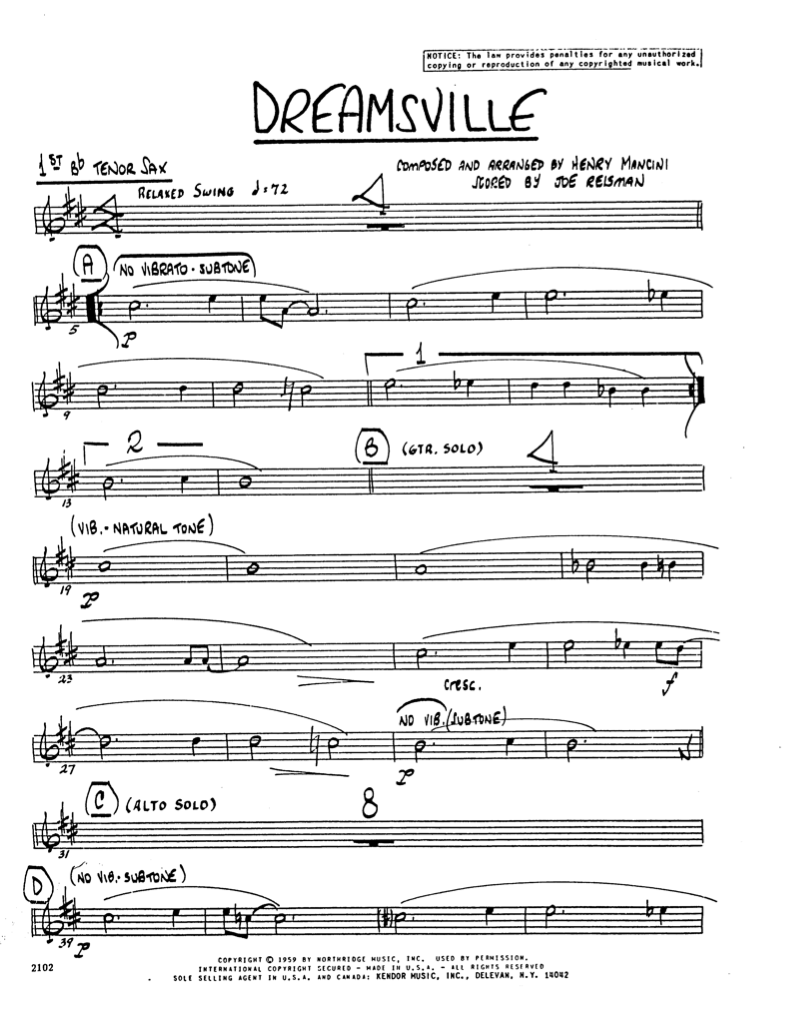 NOTICE: The law provides penalties for any unauthorized
copying or reproduction of any copyrighted musical work.
DREAMSVILLE
1ST Bb TENOR SAX
COMPOSED AND ARRANGED BY HENRY MANCINI
SCORED BY JOE REISMAN
RELAXED SWING ♩=72
4
A
(NO VIBRATO - SUBTONE)
5
P
1
9
2
B (GTR. SOLO) 4
13
(VIB. - NATURAL TONE)
19
P
23
cresc.
f
NO VIB. (SUBTONE)
27
P
C (ALTO SOLO) 8
31
D (NO VIB. - SUBTONE)
39
P
2102
COPYRIGHT © 1959 BY NORTHRIDGE MUSIC, INC. USED BY PERMISSION.
INTERNATIONAL COPYRIGHT SECURED - MADE IN U.S.A. - ALL RIGHTS RESERVED
SOLE SELLING AGENT IN U.S.A. AND CANADA: KENDOR MUSIC, INC., DELEVAN, N.Y. 14042